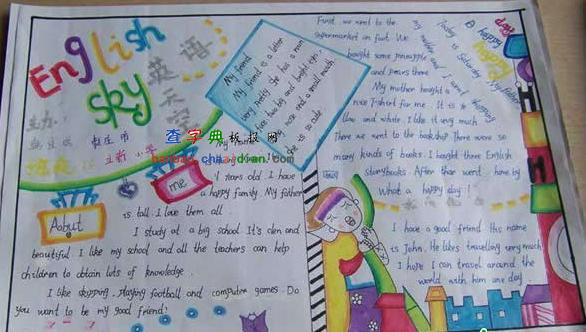 English
sky
英语
天空
查字典手抄报网
chazidian.com
My friend
My friend is a letter
very pretty. She has a round
face two big and bright eyes,
nose and a small mouth.
She is so cute
About
me
years old. I have
a happy family. My father
is tall. I love them all
I study at a big school. It's clen and
beautiful. I like my school and all the teachers can help
children to obtain lots of knowledge.
I like skipping, playing football and computer games. Do
you want to be my good friend?
A happy
day
happy
Today is Saturday. My father,
my mother and I went shopping
First, we went to the
supermarket on foot. We
bought some pineapple
and pears there
My mother bought a
nice T-shirt for me. It is
llow and white. I like it very much.
Then we went to the bookshop. There were so
many kinds of books. I bought three English
storybooks. After that went home by
What a happy day!
I have a good friend. His name
is John. He likes travelling very much
I hope I can travel around the
world with him one day